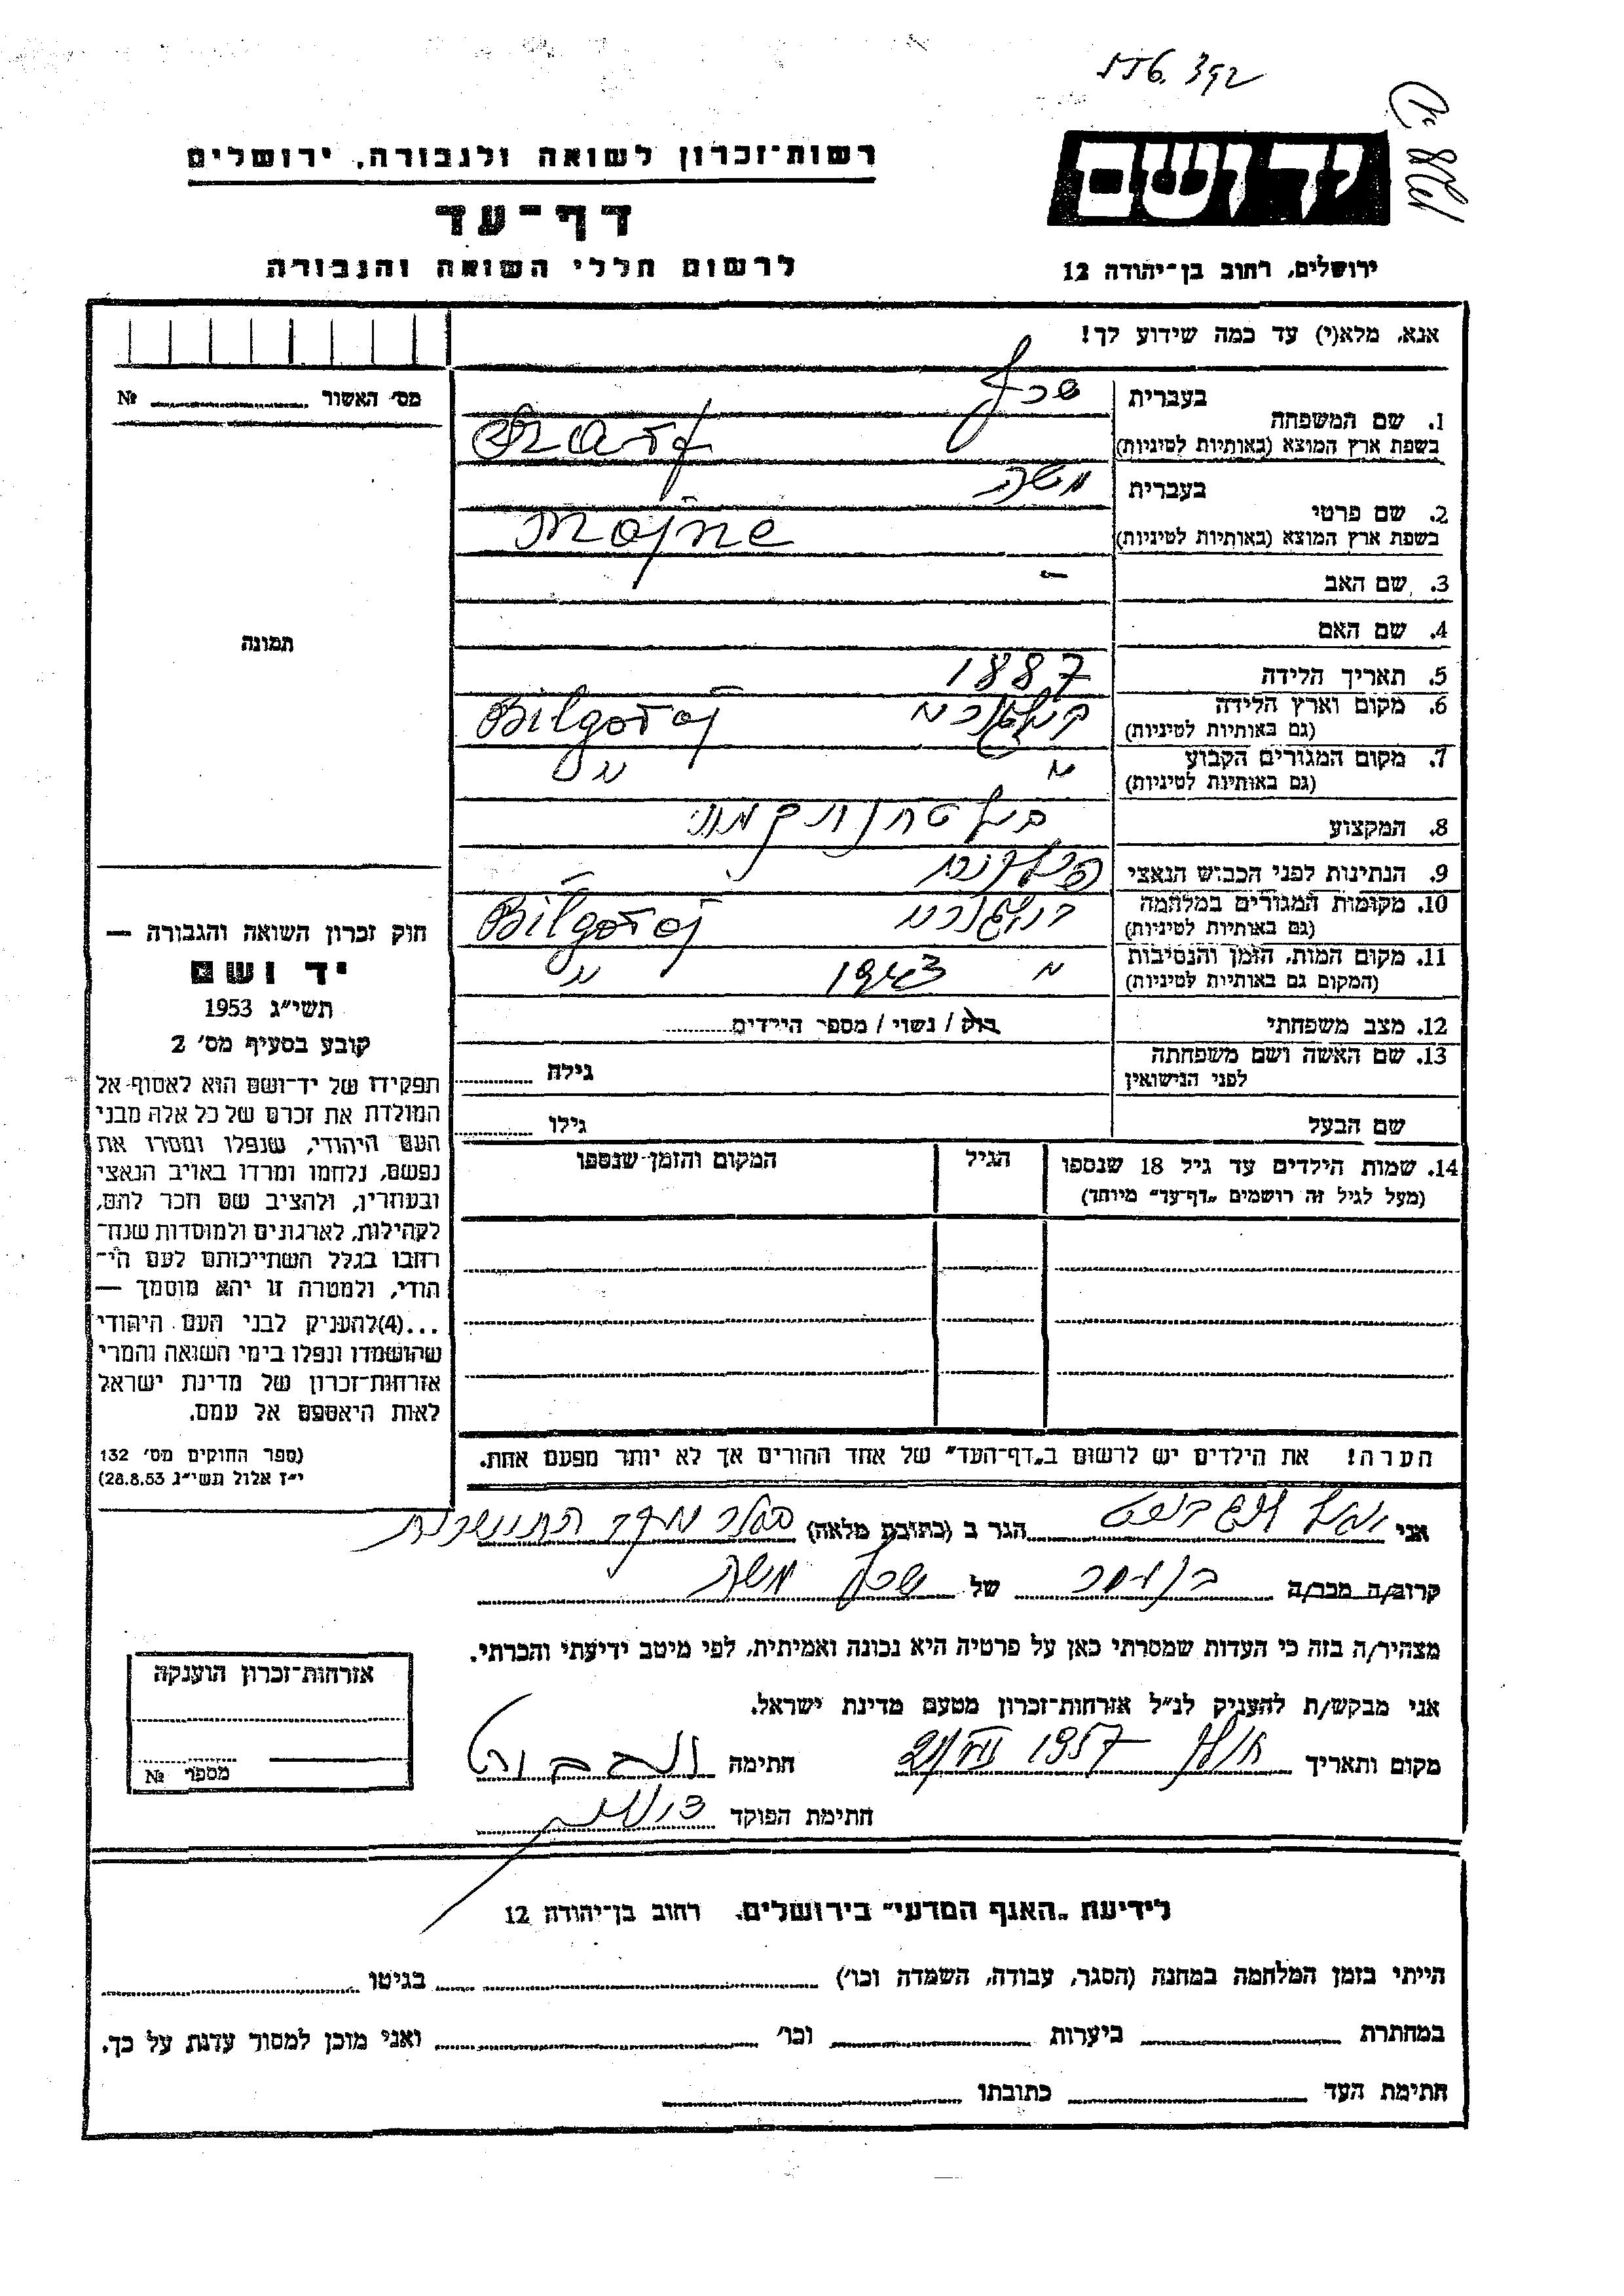 392 .טזז
רשות־זכרון לשואה ולגבורה, ירושלים
יד ושם
דף־עד
לרשום חללי השואה והגבורה
ירושלים, רחוב בן־יהודה 12
אנא, מלא(י) עד כמה שידוע לך!
מס' האשור № 
1. שם המשפחה
בעברית שרף
בשפת ארץ המוצא (באותיות לטיניות) Szarf
2. שם פרטי
בעברית משה
בשפת ארץ המוצא (באותיות לטיניות) Mojne
3. שם האב -
4. שם האם
תמונה
5. תאריך הלידה 1887
6. מקום וארץ הלידה
(גם באותיות לטיניות) Bilgoraj
7. מקום המגורים הקבוע
(גם באותיות לטיניות)
8. המקצוע
9. הנתינות לפני הכבוש הנאצי
10. מקומות המגורים במלחמה
(גם באותיות לטיניות) Bilgoraj
11. מקום המות, הזמן והנסיבות 1943
(המקום גם באותיות לטיניות)
12. מצב משפחתי רוק / נשוי / מספר הילדים
13. שם האשה ושם משפחתה
לפני הנישואין גילה
שם הבעל גילו
14. שמות הילדים עד גיל 18 שנספו הגיל המקום והזמן שנספו
(מעל לגיל זה רושמים „דף־עד” מיוחד)
חוק זכרון השואה והגבורה —
יד ושם
תשי״ג 1953
קובע בסעיף מס' 2
תפקידו של יד־ושם הוא לאסוף אל
המולדת את זכרם של כל אלה מבני
העם היהודי, שנפלו ומסרו את
נפשם, נלחמו ומרדו באויב הנאצי
ובעוזריו, ולהציב שם וזכר להם,
לקהילות, לארגונים ולמוסדות שנח־
רבו בגלל השתייכותם לעם הי־
הודי, ולמטרה זו יהא מוסמך —
...(4)להעניק לבני העם היהודי
שהושמדו ונפלו בימי השואה והמרי
אזרחות־זכרון של מדינת ישראל
לאות היאספם אל עמם.
(ספר החוקים מס' 132
י״ז אלול תשי״ג 28.8.53)
הערה! את הילדים יש לרשום ב„דף־העד” של אחד ההורים אך לא יותר מפעם אחת.
אני הגר ב (כתובת מלאה)
קרוב/ה מכר/ה של שרף משה
מצהיר/ה בזה כי העדות שמסרתי כאן על פרטיה היא נכונה ואמיתית, לפי מיטב ידיעתי והכרתי.
אני מבקש/ת להעניק לנ״ל אזרחות־זכרון מטעם מדינת ישראל.
מקום ותאריך 1957 חתימה
חתימת הפוקד
אזרחות־זכרון הוענקה
מספר №
לידיעת „האגף המדעי” בירושלים, רחוב בן־יהודה 12
הייתי בזמן המלחמה במחנה (הסגר, עבודה, השמדה וכו') בגיטו
במחתרת ביערות וכו' ואני מוכן למסור עדות על כך.
חתימת העד כתובתו